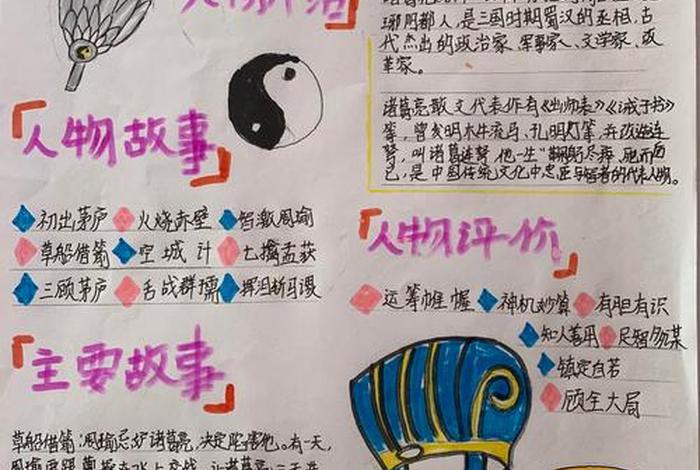 琊阳都人,是三国时期蜀汉的丞相,古
代杰出的政治家、军事家、文学家、改
革家。
诸葛亮散文代表作有《出师表》《诫子书》
等,曾发明木牛流马、孔明灯等,并改造连
弩,叫诸葛连弩,他一生"鞠躬尽瘁,死而后
已,是中国传统文化中忠臣与智者的代表人物。
人物故事
初出茅庐 火烧赤壁 智激周瑜
草船借箭 空城计 七擒孟获
三顾茅庐 舌战群儒 挥泪斩马谡
人物评价
运筹帷幄 神机妙算 有胆有识
知人善用 足智多谋
镇定自若
顾全大局
主要故事
草船借箭:周瑜忌妒诸葛亮,决定陷害他。有一天,